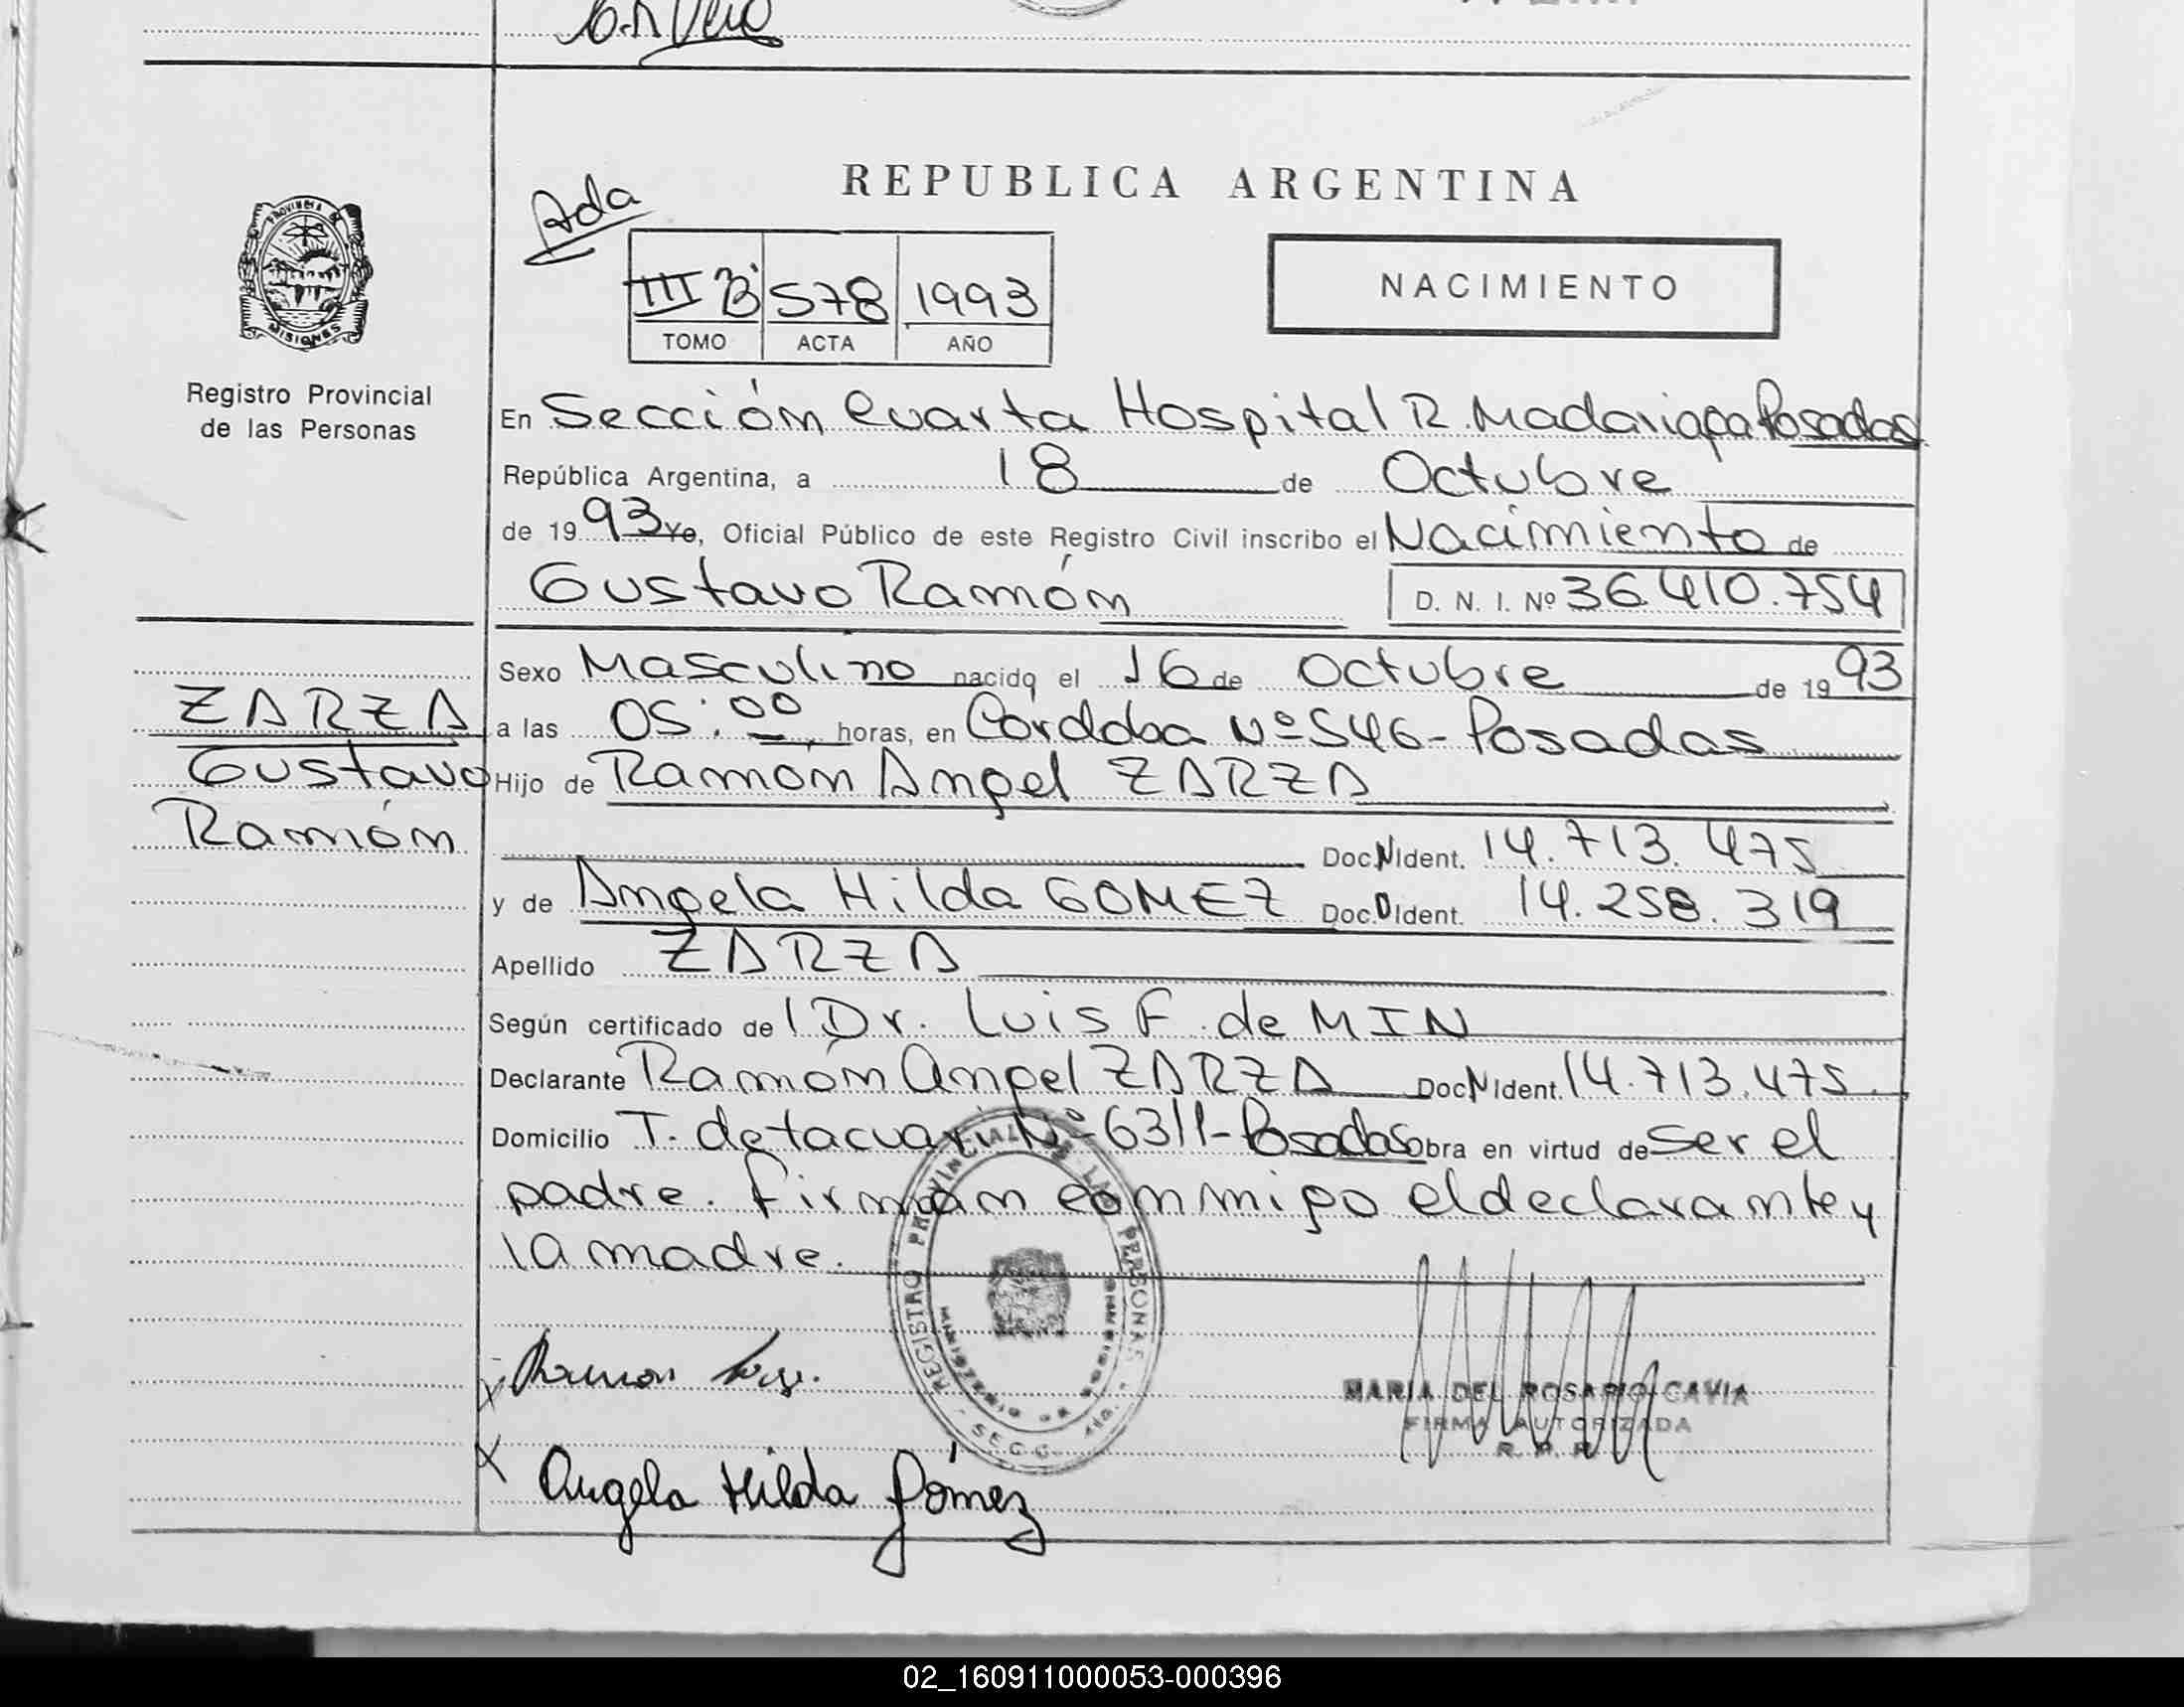 REPUBLICA ARGENTINA
Ada
III B 578 1993
TOMO ACTA AÑO
NACIMIENTO
PROVINCIA DE
MISIONES
Registro Provincial
de las Personas
En Sección Cuarta Hospital R. Madariaga Posadas
República Argentina, a 18 de Octubre
de 1993 Yo, Oficial Público de este Registro Civil inscribo el Nacimiento de
Gustavo Ramón D. N. I. Nº 36.410.754
Sexo Masculino nacido el 16 de Octubre de 1993
ZARZA
a las 05:00 horas, en Córdoba Nº 546 - Posadas
Gustavo
Hijo de Ramón Angel ZARZA
Ramón
Doc.N Ident. 14.713.475
y de Angela Hilda GOMEZ Doc.D Ident. 14.258.319
Apellido ZARZA
Según certificado del Dr. Luis F. de MIN
Declarante Ramón Angel ZARZA Doc.N Ident. 14.713.475
Domicilio T. de tacuari Nº 6311 - Posadas Obra en virtud de ser el
padre. Firman conmigo el declarante y
la madre.
REGISTRO PROVINCIAL DE LAS PERSONAS
SECC. 4ta.
Ramon
MARIA DEL ROSARIO CAVIA
FIRMA AUTORIZADA
R. P. P.
Angela Hilda Gómez
02_160911000053-000396